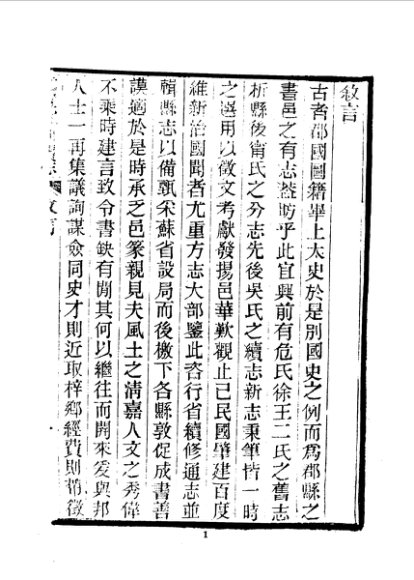 敘言
古者郡國圖籍畢上太史於是別國史之例而爲郡縣之
書邑之有志葢昉乎此宜興前有危氏徐王二氏之舊志
析縣後甯氏之分志先後吳氏之續志新志秉筆皆一時
之選用以徵文考獻發揚邑華歎觀止已民國肇建百度
維新治國聞者尤重方志大部鑒此咨行省續修通志並
輯縣志以備甄采蘇省設局而後檄下各縣敦促成書善
謨適於是時承乏邑篆親見夫風土之淸嘉人文之秀偉
不乘時建言政令書缺有閒其何以繼往而開來爰與邦
人士一再集議詢謀僉同史才則近取梓鄉經費則稍徵
1